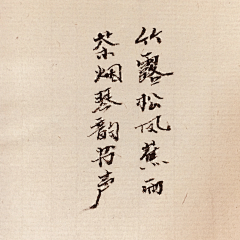 竹露松风蕉雨
茶烟琴韵书声